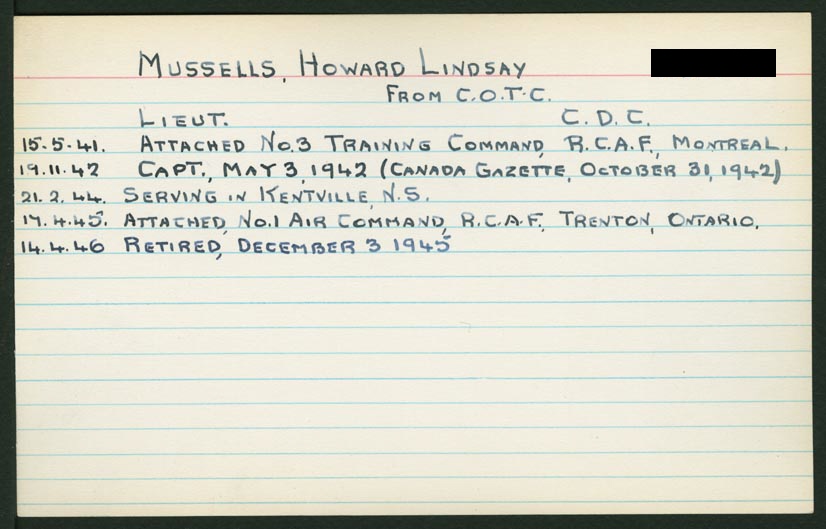 MUSSELLS, HOWARD LINDSAY
FROM C.O.T.C.
LIEUT. C.D.C.
15.5.41. ATTACHED NO.3 TRAINING COMMAND, R.C.A.F., MONTREAL.
19.11.42 CAPT., MAY 3, 1942 (CANADA GAZETTE, OCTOBER 31, 1942)
21.2.44. SERVING IN KENTVILLE, N.S.
17.4.45. ATTACHED, NO.1 AIR COMMAND, R.C.A.F., TRENTON, ONTARIO.
14.4.46 RETIRED, DECEMBER 3 1945